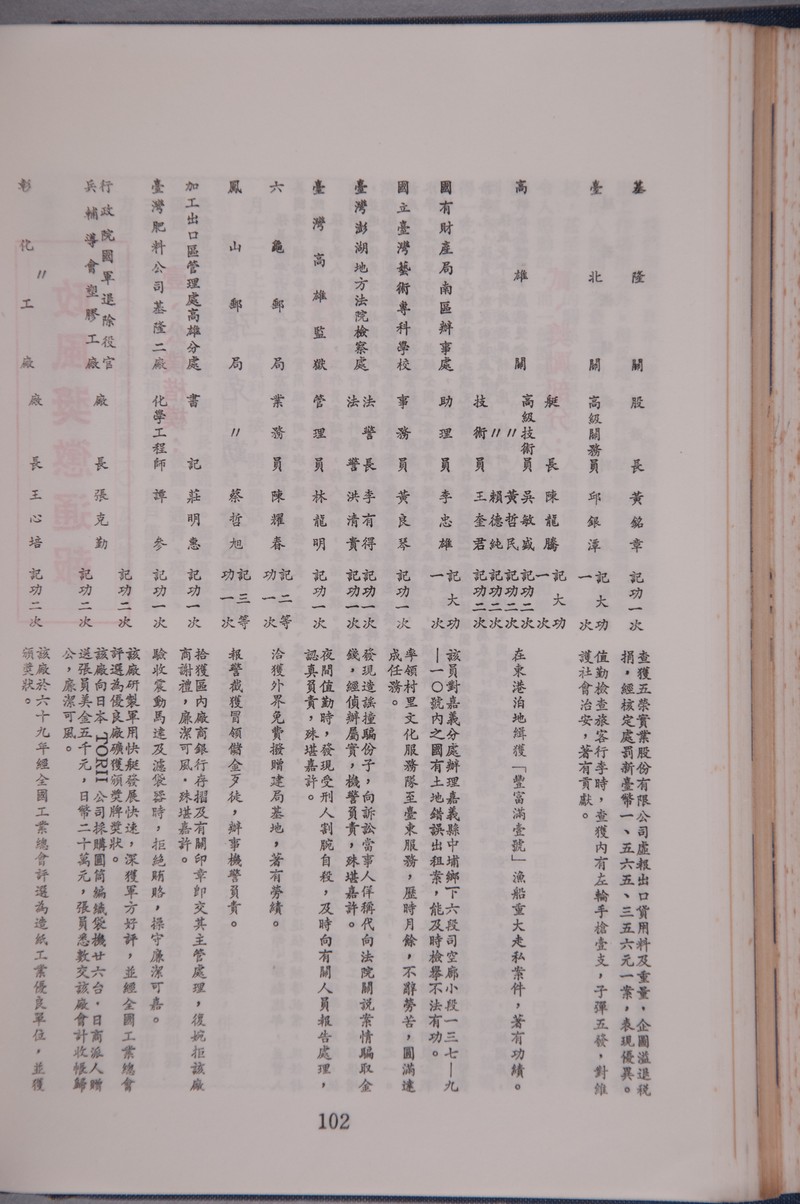 基隆關　股長　黃銘章　記功一次　查獲五榮實業股份有限公司虛報出口貨用料及重量，企圖溢退稅
捐，經核定處罰新臺幣一、五六五、三五六元一案，表現優異。
臺北關　高級關務員　邱銀潭　記大功一次　值勤檢查旅客行李時，查獲內有左輪手槍壹支，子彈五發，對維
護社會治安，著有貢獻。
高雄關　艇長　陳龍騰　記大功一次
高級技術員　吳敏崴　記功二次　在東港泊地緝獲「豐富滿壹號」漁船重大走私案件，著有功績。
〃　黃哲民　記功二次
〃　賴德純　記功二次
技術員　王奎君　記功二次
國有財產局南區辦事處　助理員　李忠雄　記大功一次　該員對嘉義分處辦理嘉義縣中埔鄉下六段司空廍小段一三七—九
—一〇號內之國有土地錯誤出租案，能及時檢舉不法有功。
國立臺灣藝術專科學校　事務員　黃良琴　記功一次　率領村里文化服務隊至臺東服務，歷時月餘，不辭勞苦，圓滿達
成任務。
臺灣澎湖地方法院檢察處　法警長　李有得　記功一次　發現造謠撞騙份子，向訴訟當事人佯稱代向法院關說案情騙取金
法警　洪清賁　記功一次　錢，經偵辦屬實，機警員責，殊堪嘉許。
臺灣高雄監獄　管理員　林龍明　記功一次　夜間值勤時，發現受刑人割腕自殺，及時向有關人員報告處理，
認真員責，殊堪嘉許。
六龜郵局　業務員　陳耀春　記二等功一次　洽獲外界免費撥贈建局基地，著有勞績。
鳳山郵局　〃　蔡哲旭　記三等功一次　報警截獲冒領儲金歹徒，辦事機警員責。
加工出口區管理處高雄分處　書記　莊明惠　記功一次　拾獲區內廠商銀行存摺及有關印章即交其主管處理，復婉拒該廠
商謝禮，廉潔可風，殊堪嘉許。
臺灣肥料公司基隆二廠　化學工程師　譚參　記功一次　驗收震動馬達及濾袋器時，拒絕賄賂，操守廉潔可嘉。
行政院國軍退除役官兵輔導會塑膠工廠　廠長　張克勤　記功二次　該廠研製軍用快艇發展快速，深獲軍方好評，並經全國工業總會
評選為優良廠礦獲頒獎牌獎狀。
記功二次　該廠向日本TORII公司採購圓筒編織袋機廿六台，日商派人贈
送張員美金五千元，日幣二十萬元，張員悉數交該廠會計收帳歸
公，廉潔可風。
彰化〃工廠　廠長　王心培　記功二次　該廠於六十九年經全國工業總會評選為造紙工業優良單位，並獲
頒獎狀。
102